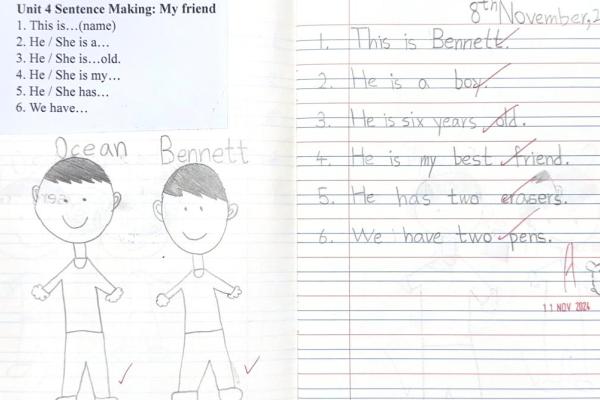 Unit 4 Sentence Making: My friend
1. This is…(name)
2. He / She is a…
3. He / She is…old.
4. He / She is my…
5. He / She has…
6. We have…
Ocean Bennett
8th November, 2
1. This is Bennett.
2. He is a boy.
3. He is six years old.
4. He is my best friend.
5. He has two erasers.
6. We have two pens.
A
11 NOV 2024